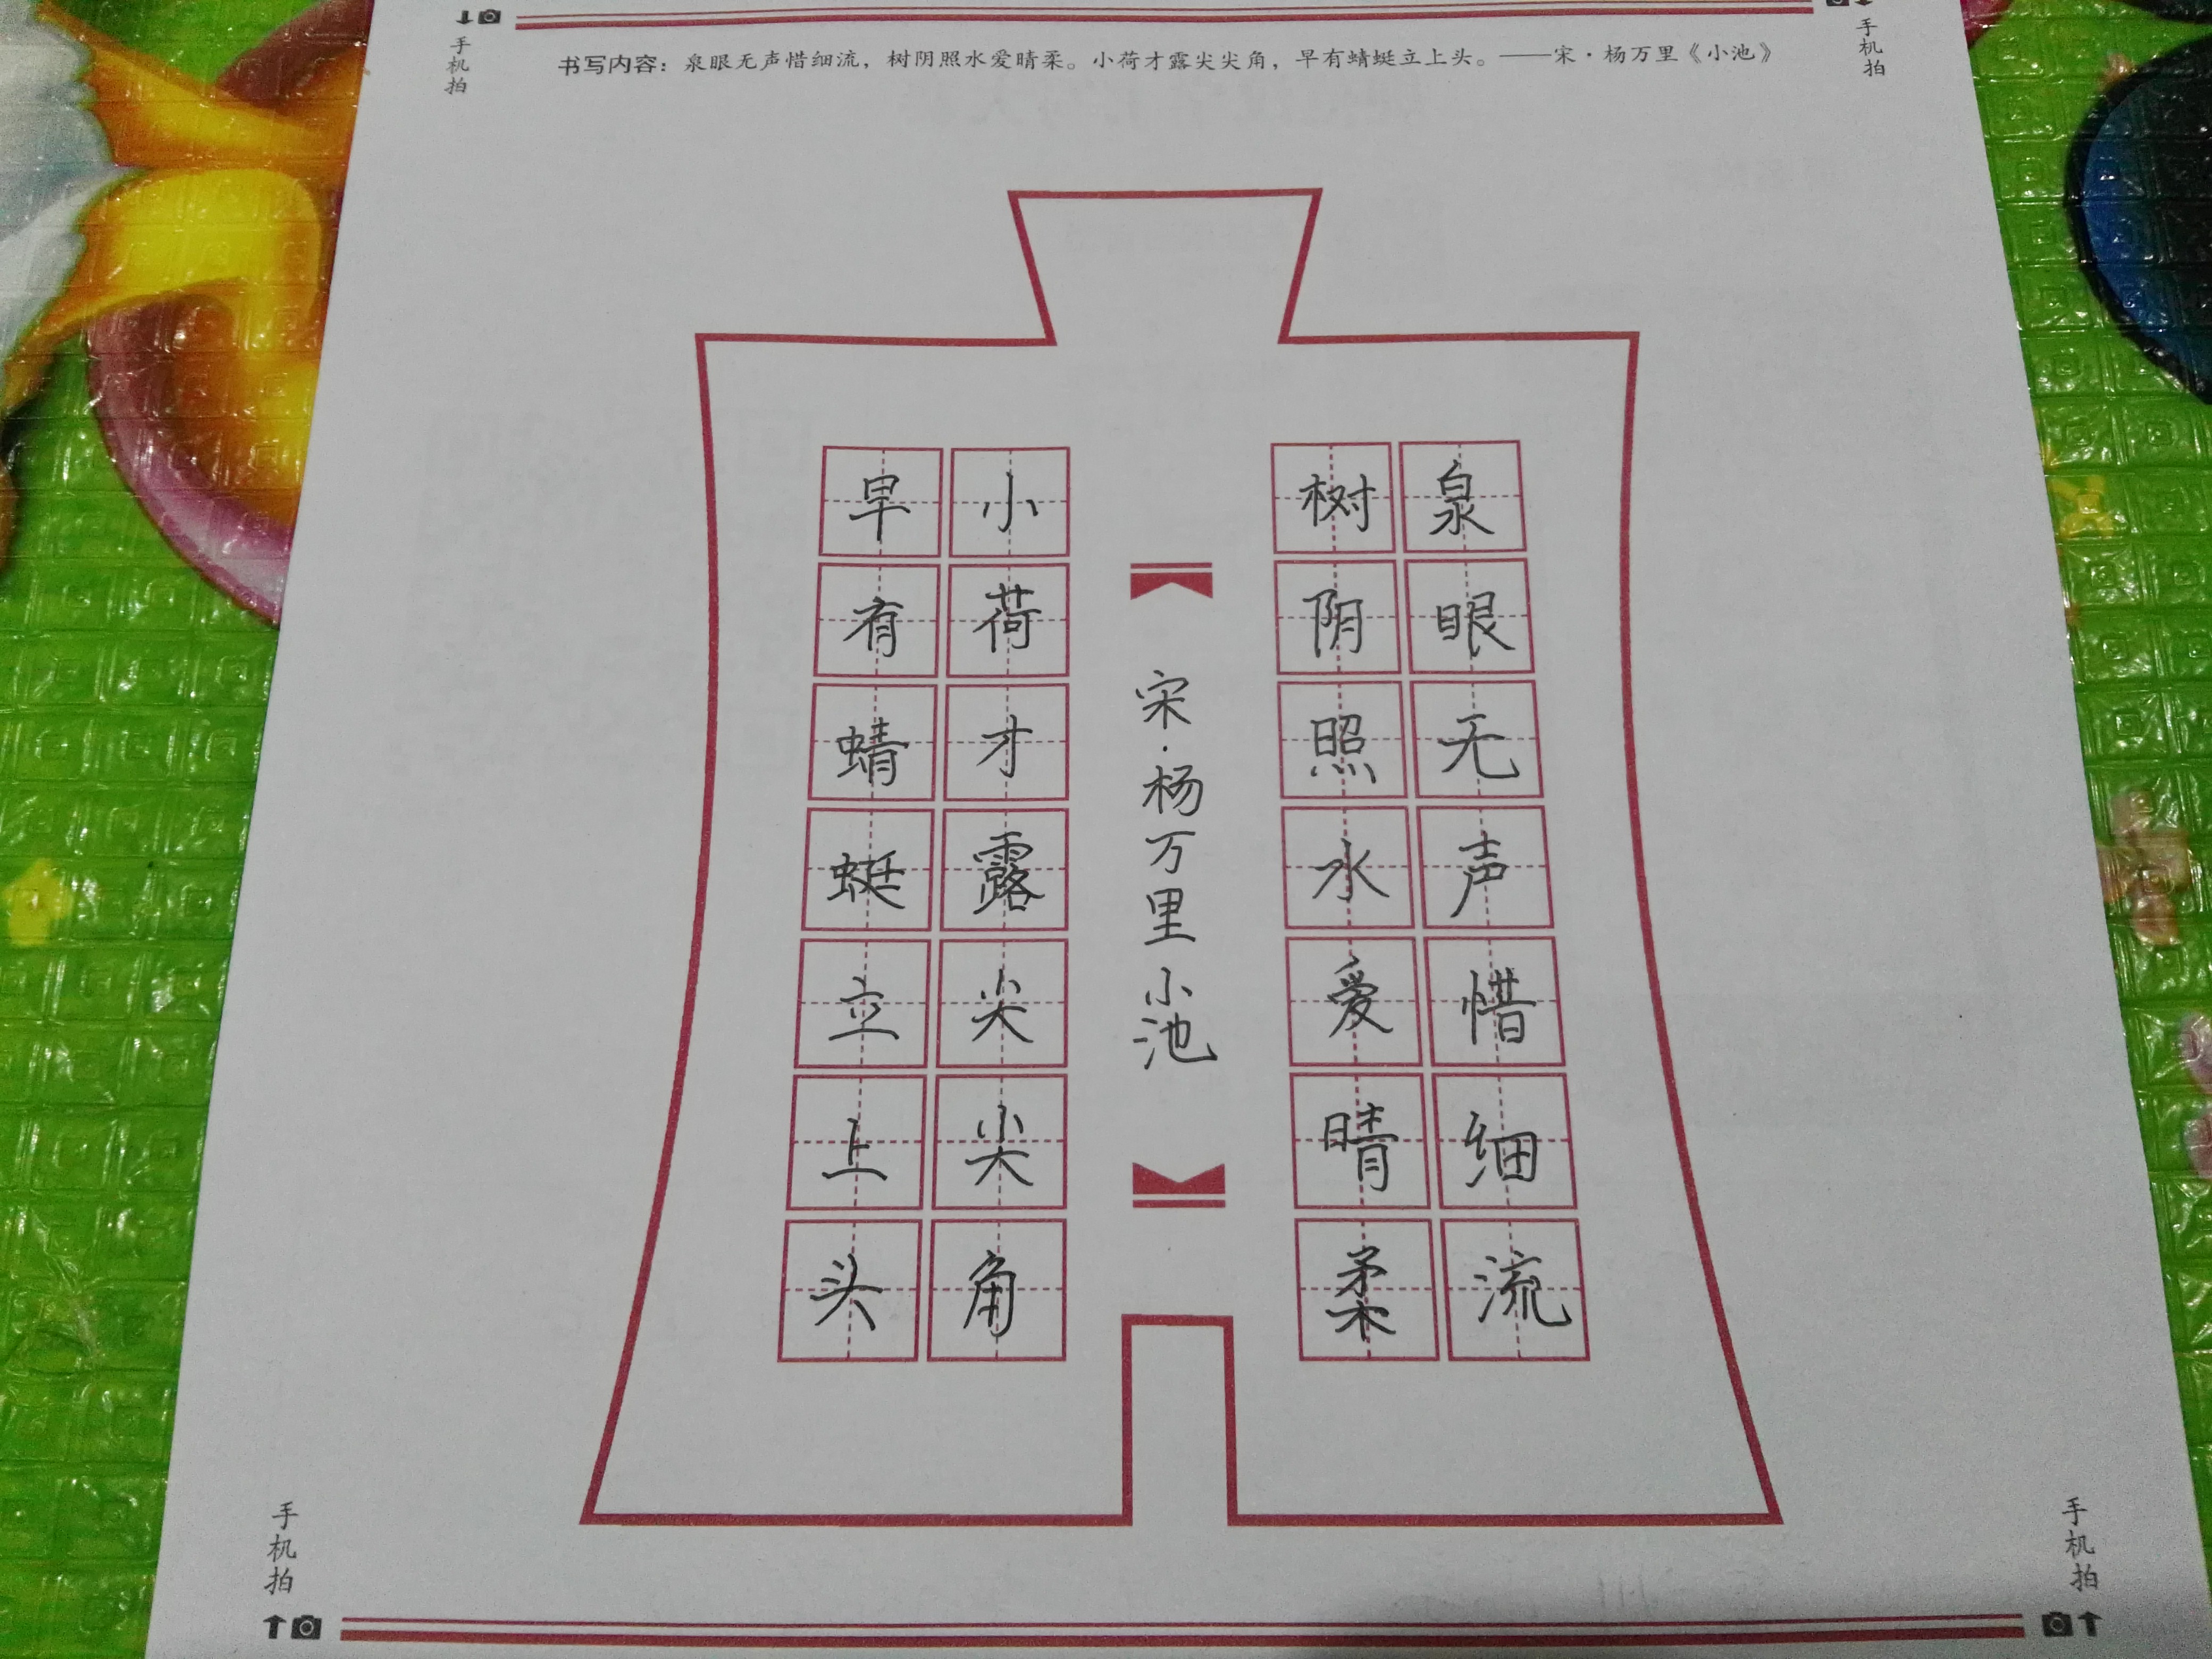 手机拍
手机拍
书写内容：泉眼无声惜细流，树阴照水爱晴柔。小荷才露尖尖角，早有蜻蜓立上头。——宋·杨万里《小池》
泉眼无声惜细流
树阴照水爱晴柔
宋·杨万里 小池
小荷才露尖尖角
早有蜻蜓立上头
手机拍
手机拍